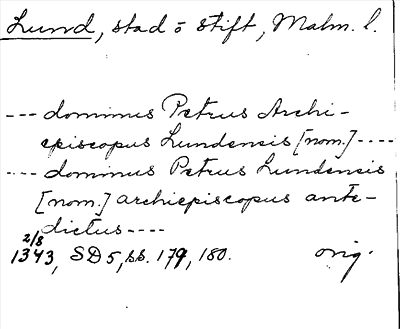 Lund, stad o stift, Malm. l.
--- dominus Petrus Archi-
episcopus Lundensis [nom.] ----
--- dominus Petrus Lundensis
[nom.] archiepiscopus ante-
dictus ----
2/8
1343, SD 5, ss. 179, 180. orig.